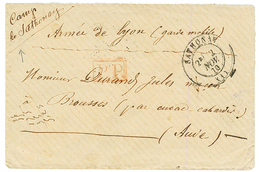 Camp
de Sathonay
Armée de Lyon (garde mobile)
SATHONAY
2
NOV.
70
P.P.
Monsieur Durand Jules maçon
à Brousses (par cuxac cabardès)
(Aude)